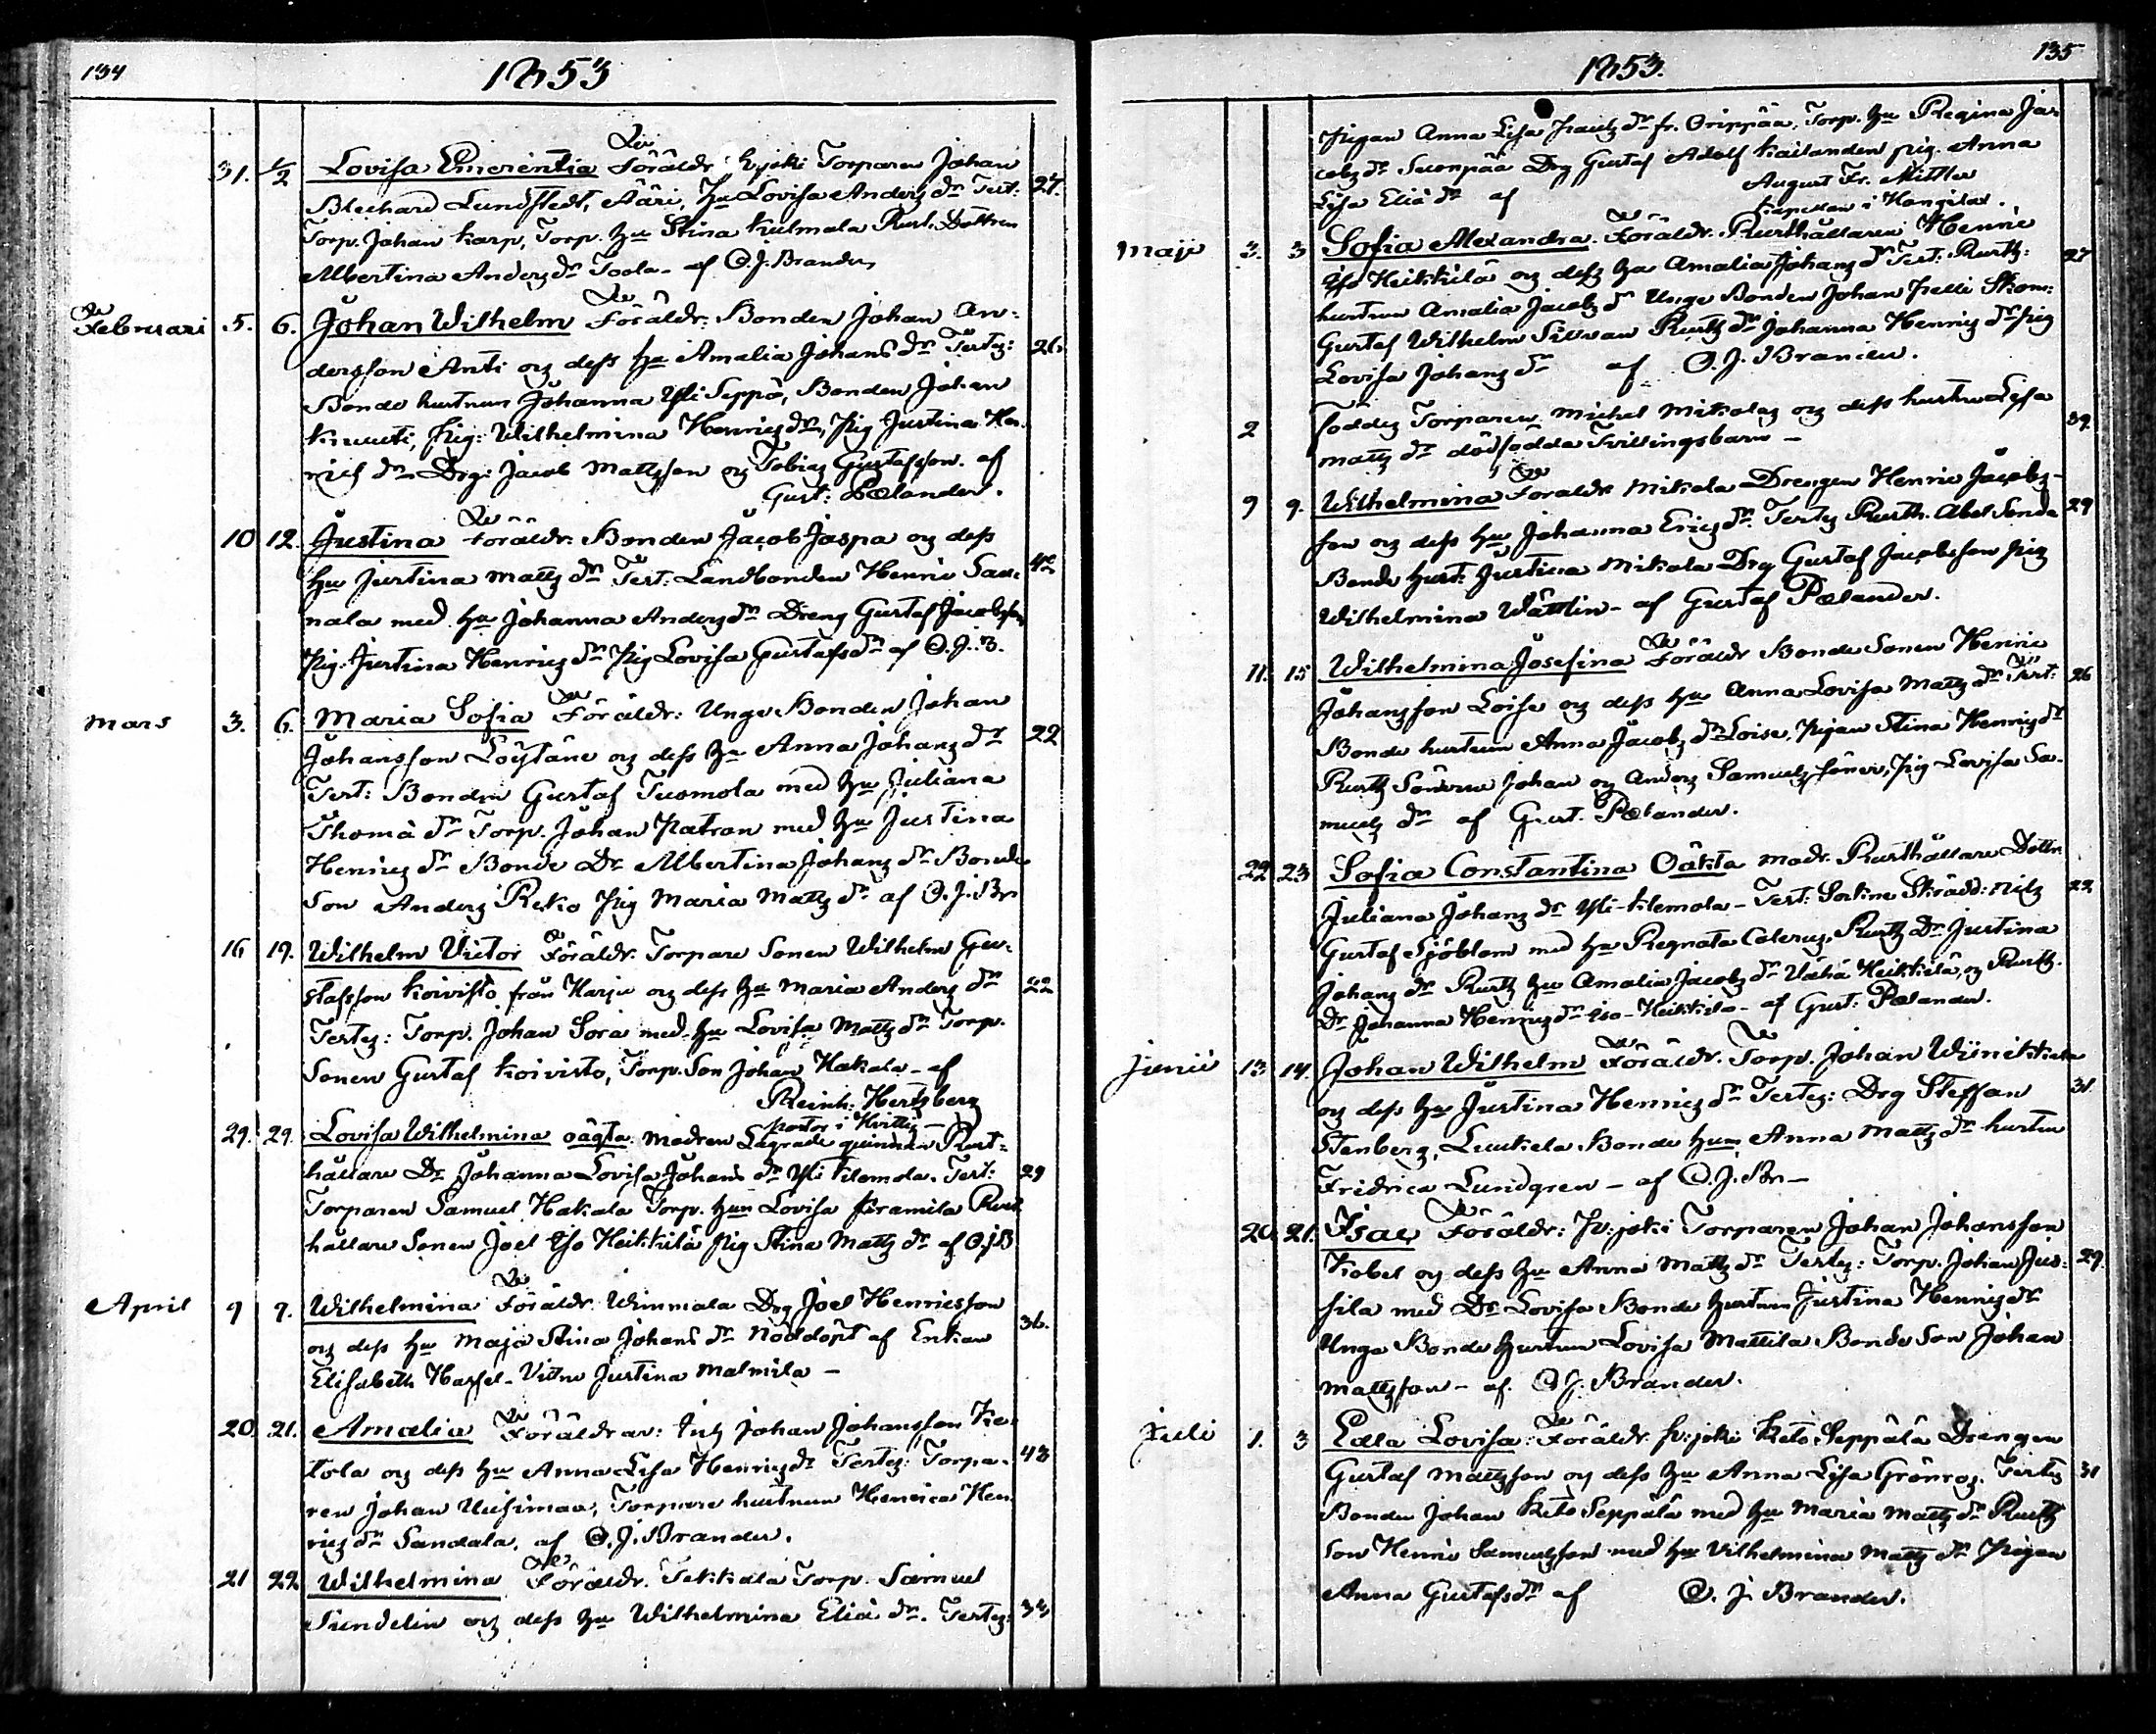 134
1853
31. 1/2 Lovisa Emerentia Föräldr. Kjoki Torparen Johan 27.
Blechard Lundstedt, Ääri, Hu Lovisa Anders dr Test:
Torp. Johan Karp, Torp. Hu Stina Kulmala Rust. Dottren
Albertina Anders dr Toola - af C. J. Brander,
Februari 5. 6. Johan Wilhelm Föräldr: Bonden Johan An-
dersson Anti og dess hu Amalia Johans dr Testes: 26
Bonde hustrun Johanna Yli Seppä, Bonden Johan
Knuuti, Pig: Wilhelmina Henrics dr, Pig Justina Hen-
rics dr Drg: Jacob Mattsson og Tobias Gustafsson. af
Gust: Pælander.
10 12. Justina Föräldr. Bonden Jacob Jaspa og dess
hu Justina Matts dr Test: Landbonden Henric San- 42
nala med hu Johanna Anders dr Dreng Gustaf Jacobsson
Pig. Justina Henrics dr Pig Lovisa Gustafs dr af C. J. B.
Mars 3. 6. Maria Sofia Föräldr: Unge Bonden Johan
Johansson Löytäne og dess hu Anna Johans dr 22
Test: Bonden Gustaf Tuomola med hu Juliana
Thomä dr Torp. Johan Patron med hu Justina
Henrics dr Bonde Dr Albertina Johans dr Bonde
Son Anders Reko Pig Maria Matts dr af C. J. Br
16 19. Wilhelm Victor Föräldr. Torpare Sonen Wilhelm Gu-
stafsson Koivisto från Harju og dess hu Maria Anders dr 22
Testes: Torp. Johan Sora med hu Lovisa Matts dr Torp.
Sonen Gustaf Koivisto, Torp. Son Johan Hakala - af
Reinh: Hertzberg
pastor i Hvittis -
29. 29. Lovisa Wilhelmina oägta. Modren Lägrade quinnan Rust-
hållare Dr Johanna Lovisa Johans dr Yli Klemola. Test: 29
Torparen Samuel Hakala Torp. hun Lovisa Kramila Rust
hållare Sonen Joel Iso Heikkilä Pig Stina Matts dr af C. J. B
April 9 9. Wilhelmina Föräldr Winmala Drg Joel Henricsson
og dess hu Maja Stina Johans dr Nöddöpt af Enkan 36.
Elisabeth Hassel - Vitne Justina Malmila -
20. 21. Amalia Föräldrar: Johan Johansson Ke-
tola og dess hu Anna Lisa Henrics dr Testes: Torpa- 43
ren Johan Uusimaa, Torpare hustrun Henrica Hen-
rics dr Sandala, af C. J. Brander.
21 22 Wilhelmina Föräldr. Tekkala Torp. Samuel
Sundelin og dess hu Wilhelmina Eliä dr. Testes: 33
135
1853.
Pigan Anna Lisa Frantz dr fr. Oripää, Torp. hu Regina Ja-
cobs dr Suonpää Drg Gustaf Adolf Kailanden pig. Anna
Lisa Eliä dr af August Fr. Mittler
Kapellan i Kangilax.
Maji 3. 3 Sofia Alexandra. Föräldr. Rusthållaren Henric
Iso Heikkilä og dess hu Amalia Johans dr Test: Rusth: 27
hustrun Amalia Jacobs dr Unge Bonden Johan Prelli Skom:
Gustaf Wilhelm Silwan Rusth dr Johanna Henrics dr pig
Lovisa Johans dr af C. J. Brander.
2 Föddes Torparen Michel Mikolas og dess hustru Lisa 39
Matts dr dödfödda Tvillingsbarn -
9 9. Wilhelmina Föräldr Mikola Drengen Henric Jacobs-
son og dess hu Johanna Erics dr. Testes Rusth. Abel Sonda 29
Bonde Hust: Justina Mikola Drg Gustaf Jacobsson pig
Wilhelmina Wättlin - af Gustaf Pælander.
11. 15 Wilhelmina Josefina Föräldr Bonde Sonen Henric
Johansson Loise og dess hu Anna Lovisa Matts dr Test: 26
Bonde hustrun Anna Jacobs dr Loise, Pigan Stina Henrics dr
Rusth Sönerna Johan og Anders Samuels söner, Pig Lovisa Sa-
muels dr af Gust. Pælander.
22 23 Sofia Constantina Oäkta Modr. Rusthållare Dottr.
Juliana Johans dr Yli-Klemola - Test: Sockne Skrädd: Nils 22
Gustaf Sjöblom med hu Regnata Calerus, Rusth Dr Justina
Johans dr Rusth hu Amalia Jacobs dr Vähä Heikkilä, og Rusth.
Dr. Johanna Henrics dr Iso-Heikkilä - af Gust: Pælander.
Junii 13 14. Johan Wilhelm Föräldr. Torp. Johan Wiinikkala
og dess hu Justina Henrics dr Testes: Drg Steffan 31
Stenberg, Luukela Bonde hun Anna Matts dr hustru
Fridrica Lundgren - af C. J. Br -
20. 21. Isac Föräldr: Pv:joki Torparen Johan Johansson
Kobel og dess hu Anna Matts dr Testes: Torp. Johan Jus- 29.
sila med Dr. Lovisa Bonde hustrun Justina Henrics dr
Unge Bonde hustrun Lovisa Mattila Bonde Son Johan
Mattsson - af. C. J. Brander.
Juli 1. 3 Edla Lovisa: Föräldr. Pv:joki Keto Seppälä Drengen
Gustaf Mattsson og dess hu Anna Lisa Grönros. Testes 31
Bonden Johan Keto Seppälä med hu Maria Matts dr Rusth
Son Henric Samuelsson med hu Vilhelmina Matts dr Pigan
Anna Gustafs dr af C. J. Brander.